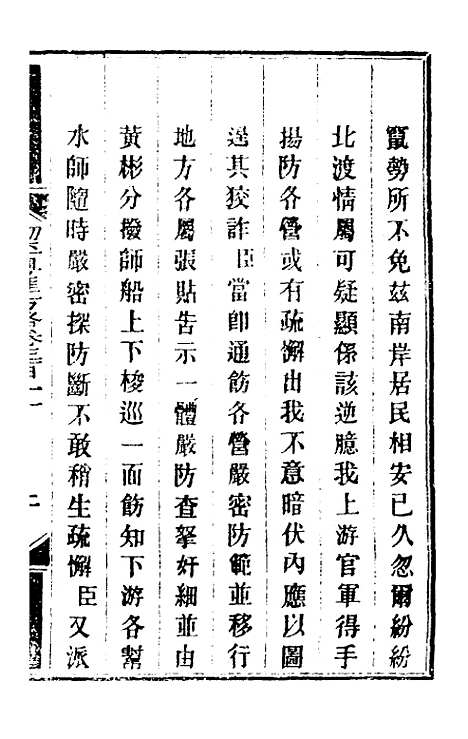 竄勢所不免茲南岸居民相安已久忽爾紛紛
北渡情屬可疑顯係該逆臆我上游官軍得手
揚防各營或有疏懈出我不意暗伏內應以圖
逞其狡詐臣當卽通飭各營嚴密防範並移行
地方各屬張貼告示一體嚴防查拏奸細並由
黃彬分撥師船上下梭巡一面飭知下游各幫
水師隨時嚴密探防斷不敢稍生疏懈臣又派